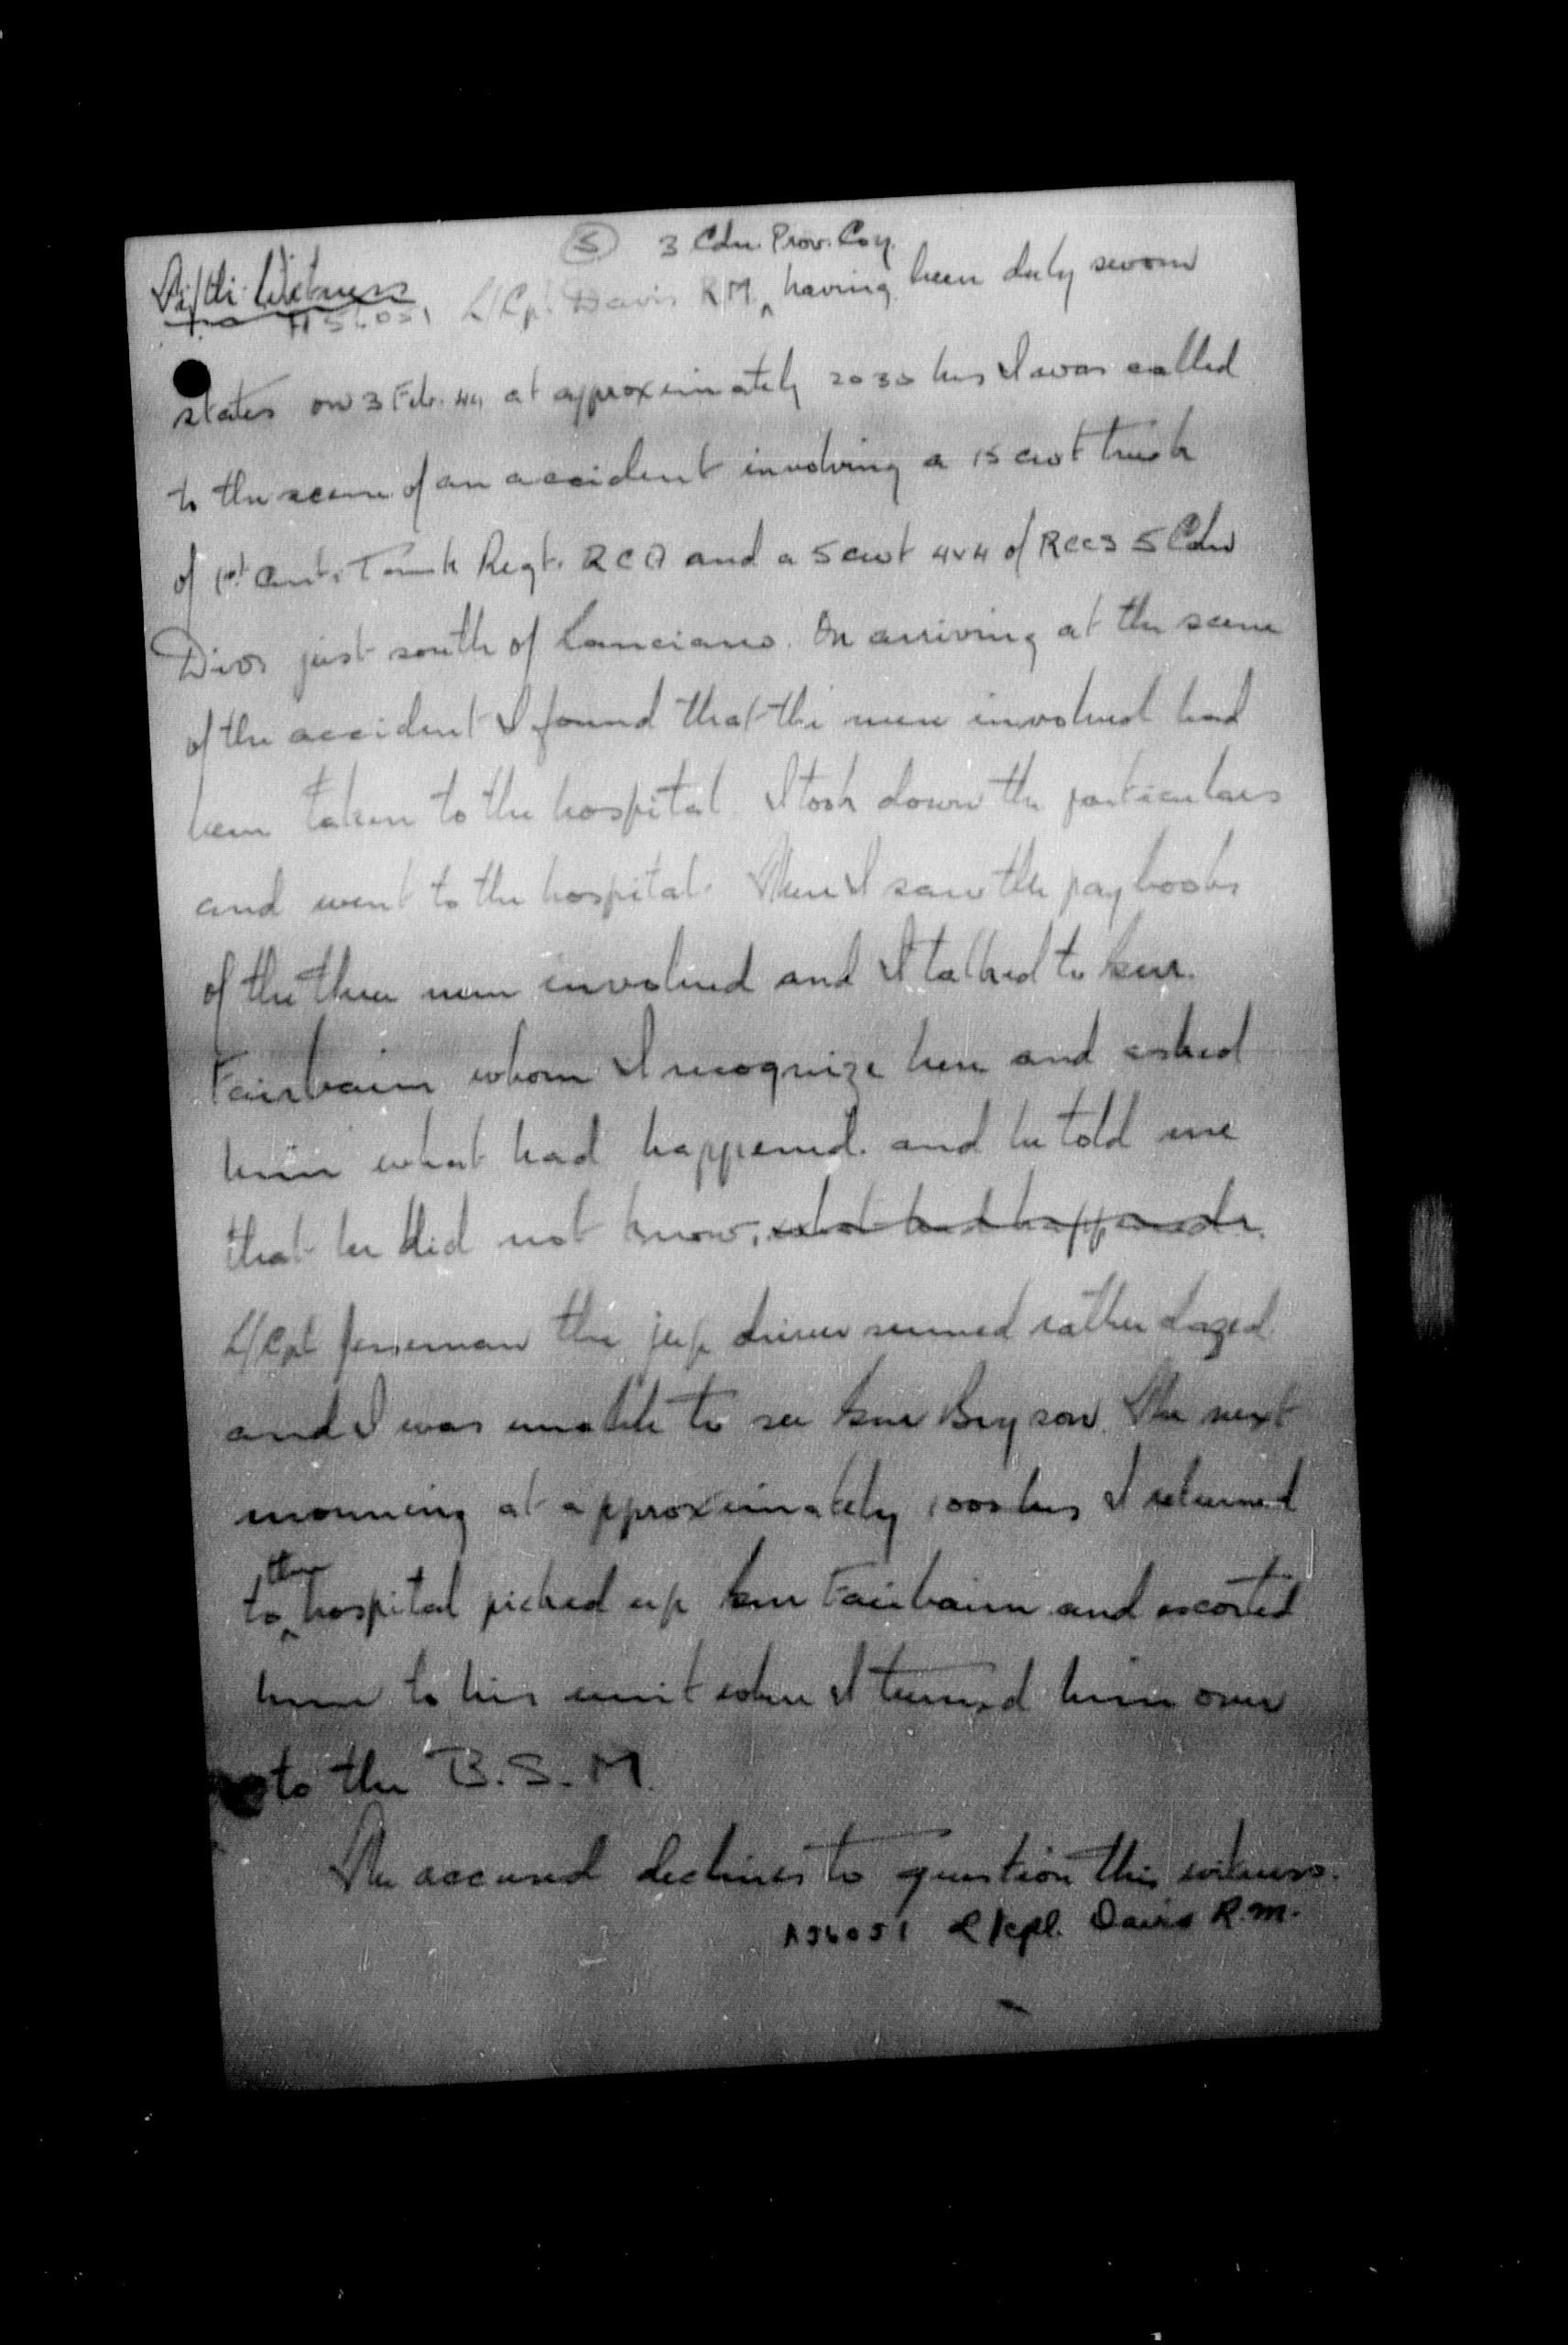 5   3 Cdn. Prov. Coy.
Fifth Witness
A56051 L/Cpl Davis R.M. ^ having been duly sworn
states on 3 Feb. 44 at approximately 2030 hrs I was called
to the scene of an accident involving a 15 cwt truck
of 1st Anti-Tank Regt. RCA and a 5 cwt 4x4 of RCCS 5 Cdn
Div. just south of Lanciano. On arriving at the scene
of the accident I found that the men involved had
been taken to the hospital. I took down the particulars
and went to the hospital. There I saw the paybooks
of the three men involved and I talked to Gnr.
Fairbairn whom I recognize here and asked
him what had happened. and he told me
that he did not know, what had happened.
L/Cpl the jeep driver seemed rather dazed
and I was unable to see Gnr Bryson. The next
morning at approximately 1000 hrs I returned
to ^the hospital picked up Gnr Fairbairn and escorted
him to his unit where I turned him over
to the B.S.M.
The accused declines to question this witness.
A56051 L/Cpl. Davis R.M.